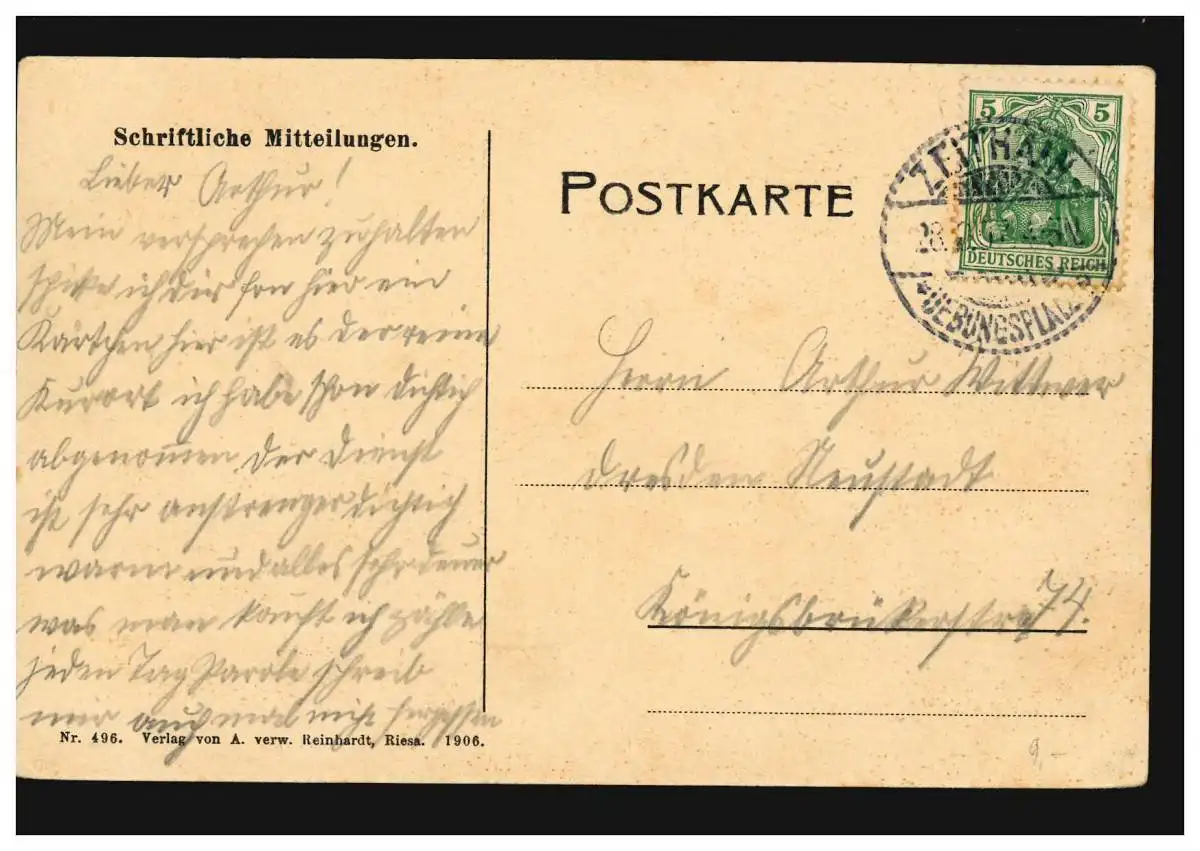 Schriftliche Mitteilungen.
Lieber Arthur!
Mein versprechen zuhalten
ich dir fon hier ein
Kärtchen hier ist es der reine
Kurort ich habe schon dichtich
abgenommen. Der Dienst
ist sehr anstrengend dichtich
warm und alles sehr deuer
was man kauft ich zähle
jeden Tag Parole schreib
mir auch mal nicht fergessen
Nr. 496. Verlag von A. verw. Reinhardt, Riesa. 1906.
POSTKARTE
5 5
DEUTSCHES REICH
ZEITHAIN
28.
UEBUNGSPLATZ
Herrn Arthur Wittwer
Dresden Neustadt
Königsbrükerstr 74.
9,-